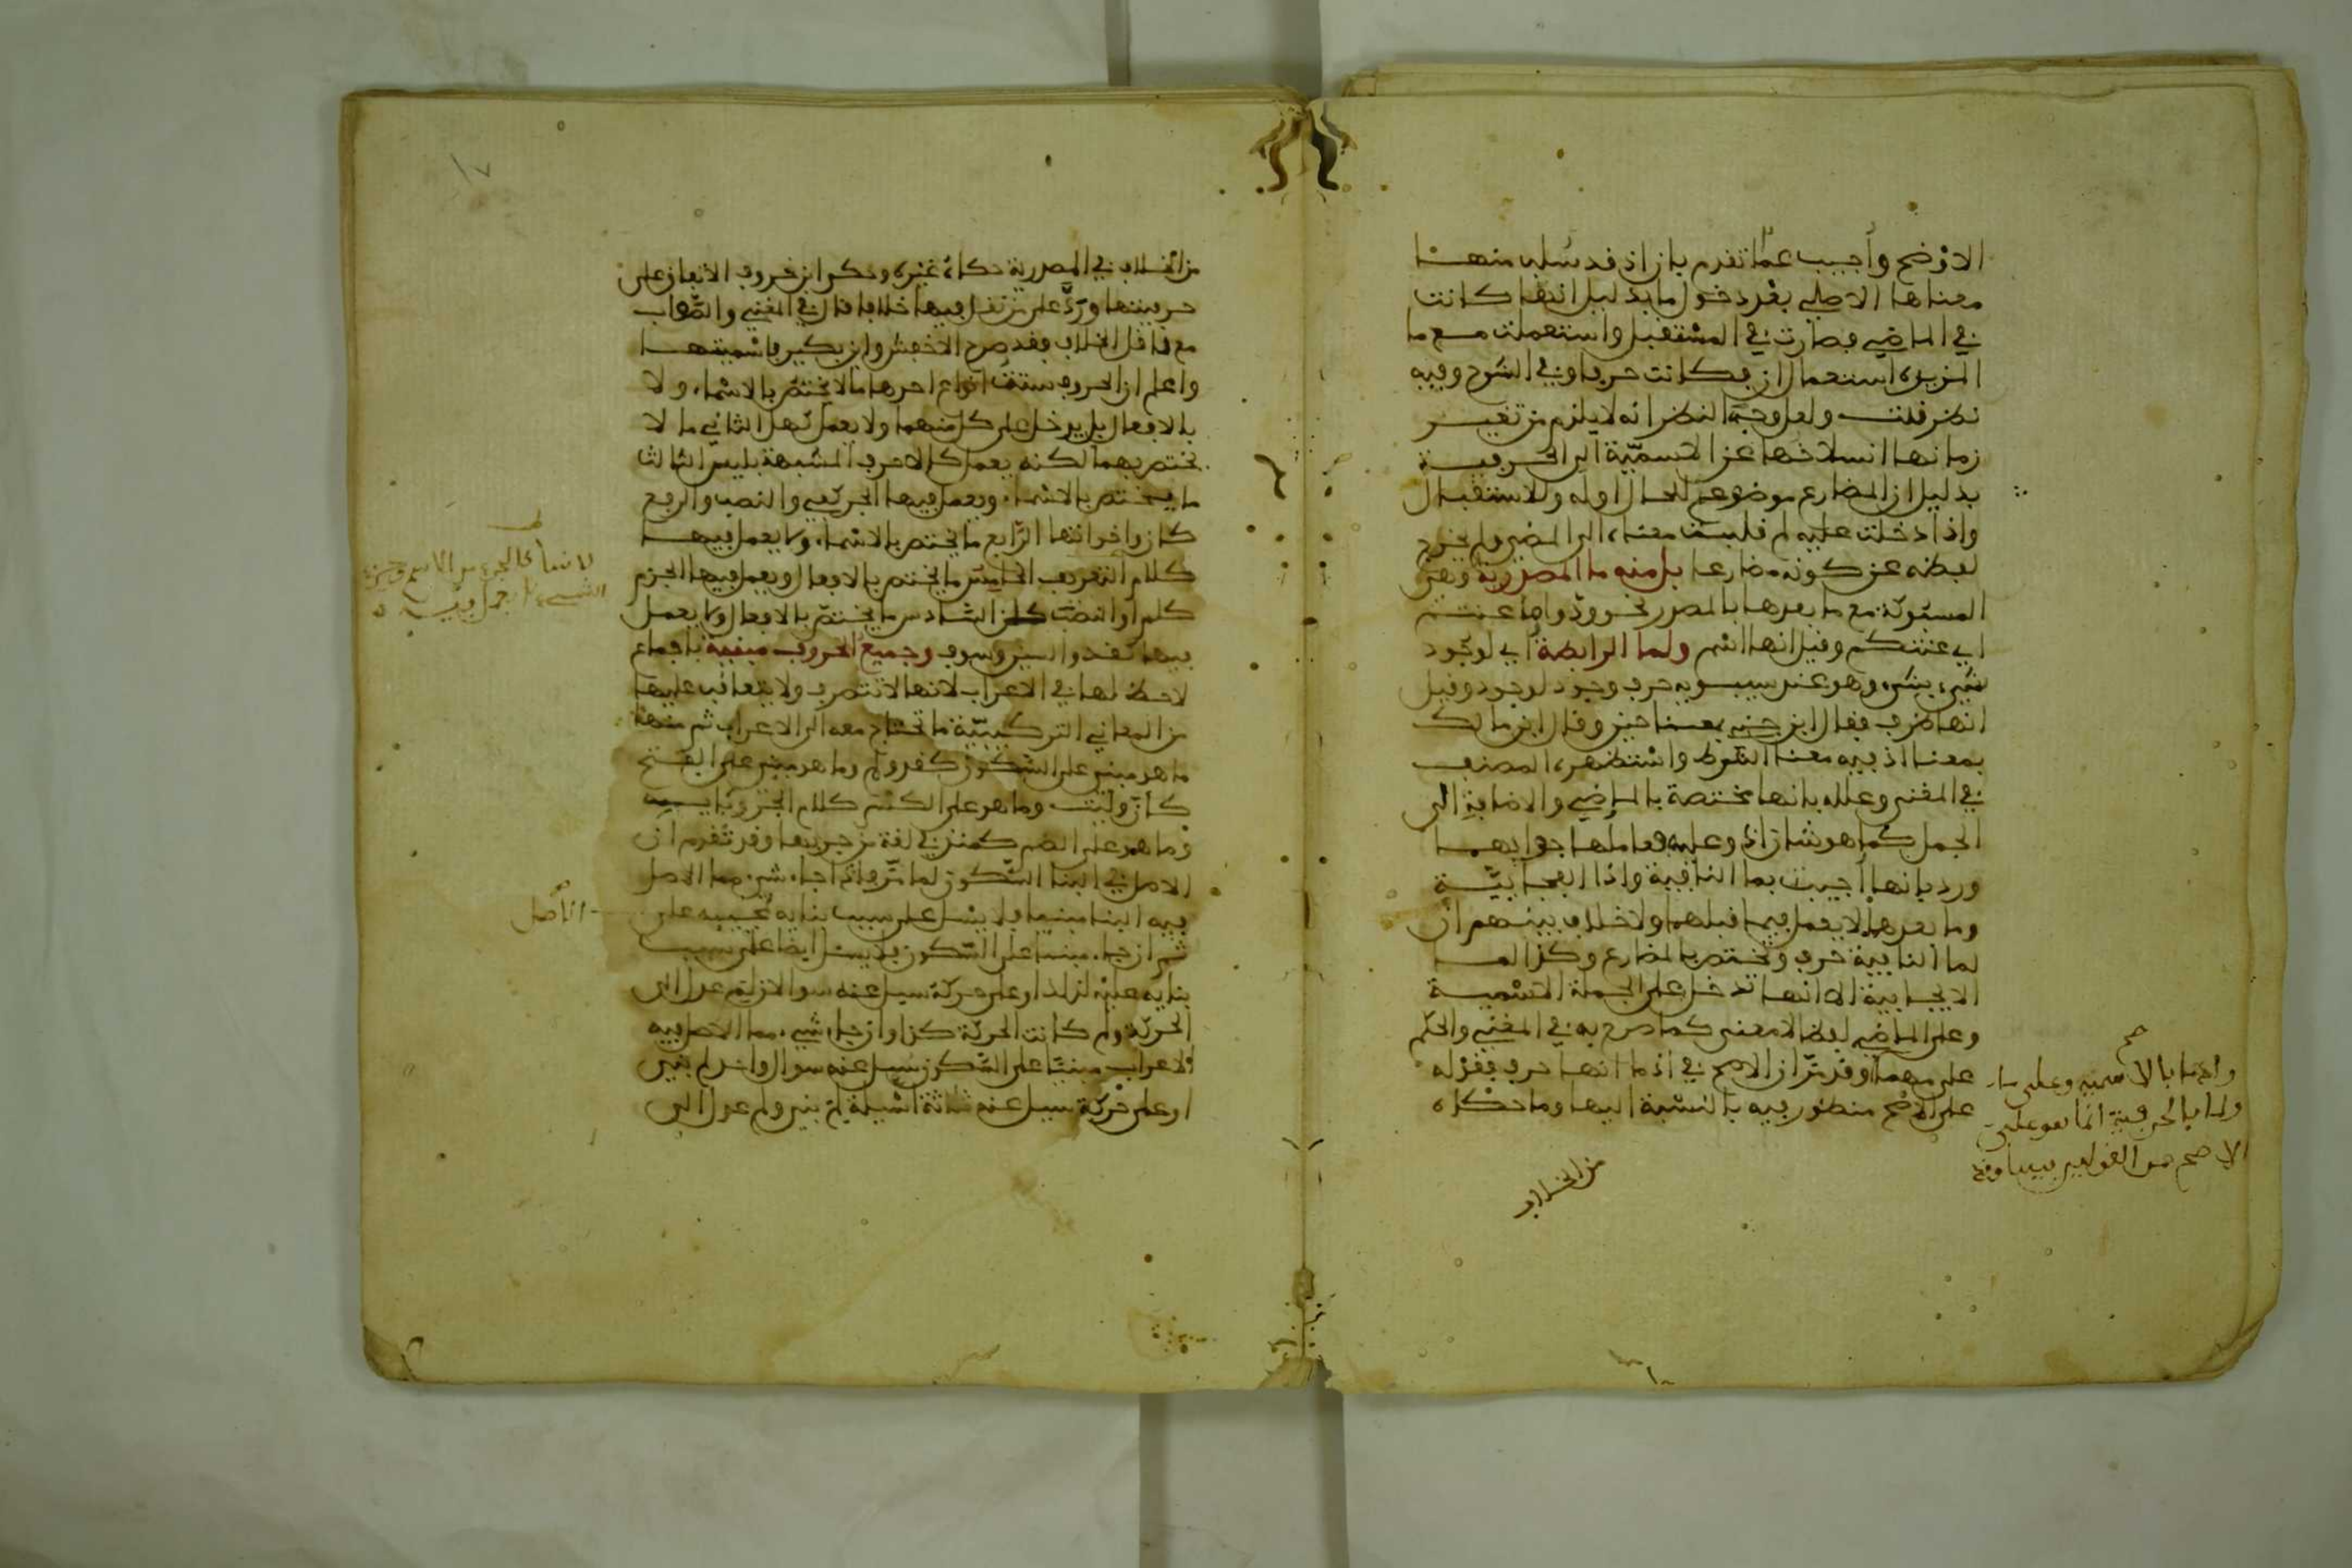 الاوضح وأجيب عما تقدم بان اذ قد سلب منها
معناها الاصلي بعد دخول ما بدليل انها كانت
في الماضي فصارت في المستقبل واستعملت مع ما
المزيدة استعمال ان فكانت حرفا وفي الشرح وفيه
نظر قلت ولعل وجه النظر انه لا يلزم من تغيير
زمانها انسلاخها عن الاسمية الى الحرفية
بدليل ان المضارع موضوع للحال اوله وللاستقبال
واذا دخلت عليه لم قلبت معناه الى المضي ولم يخرج
لفظه عن كونه مضارعا بل منه ما المصدرية وهي
المسبوكة مع ما بعدها بالمصدر نحو ودوا ما عنتم
اي عنتكم وقيل انها اسم ولما الرابطة اي لوجود
شيء بشيء وهو عند سيبويه حرف وجود لوجود وقيل
انها ظرف فقال ابن جني بمعنا حين وقال ابن مالك
بمعنا اذ فيه معنا الشرط واستظهره المصنف
في المغني وعلله بانها مختصة بالماضي والاضافة الى
الجمل كما هو شان اذ وعليه فعاملها جوابهما
ورد بانها أجيبت بما النافية واذا الفجائية
وما بعدها لا يعمل فيما قبلهما ولا خلاف بينهم ان
لما النافية حرف وتختص بالمضارع وكذا لما
الايجابية الا انها تدخل على الجملة الاسمية
وعلى الماضي لفظا لا معنى كما صرح به في المغني والحكم
على مهما وقد مر ان الاصح في اذ ما انها حرف فقوله
على الاصح منظور فيه بالنسبة اليها وما حكاه
صح
ولما بالحرفية انما هو على
الاصح من القولين
من الخلاف
١٧
من الخلاف في المصدرية حكاه غيره وذكر ابن خروف الاتفاق على
حرفيتها ورد على من نقل فيها خلافا قال في المغني والصواب
مع ناقل الخلاف فقد صرح الاخفش وابو بكر باسميتها
واعلم ان الحروف ستة انواع احدها ما لا يختص بالاسماء ولا
بالافعال بل يدخل على كل منهما ولا يعمل كهل الثاني ما لا
يختص بهما لكنه يعمل كالاحرف المشبهة بليس الثالث
ما يختص بالاسماء ويعمل فيها الجر كفي والنصب والرفع
كان واخواتها الرابع ما يختص بالاسماء ولا يعمل فيها
كلام التعريف الخامس ما يختص بالافعال ويعمل فيها الجزم
كلم او النصب كلن السادس ما يختص بالافعال ولا يعمل
فيها كقد والسين وسوف وجميع الحروف مبنية باجماع
لا حظ لها في الاعراب لانها لا تتصرف ولا يتعاقب عليها
من المعاني التركيبية ما تحتاج معه الى الاعراب ثم منها
ما هو مبني على السكون كقد ولم وما هو مبني على الفتح
كان وليت وما هو على الكسر كلام الجر وبايه
وما هو على الضم كمنذ في لغة من جر بها وقد تقدم ان
الاصل في البنا السكون لما مر فاذا جاء شيء مما الاصل
فيه البنا مبنيا فلا يسل على سبب بنايه لمجيبه على
ثم ان جاء مبنيا على السكون فلا يسل ايضا على سبب
بنايه عليه لذلك او على حركة سيل عنه سوالان لم عدل الى
الحركة ولم كانت الحركة كذا وان جاء شيء مما الاصل فيه
الاعراب مبنيا على السكون سيل عنه سوال واحد لم بني
او على حركة سيل عنه ثلاثة اسيلة لم بني ولم عدل الى
لانها كالجزء من الاسم وجزء
الشيء لا يعمل فيه
الاصل